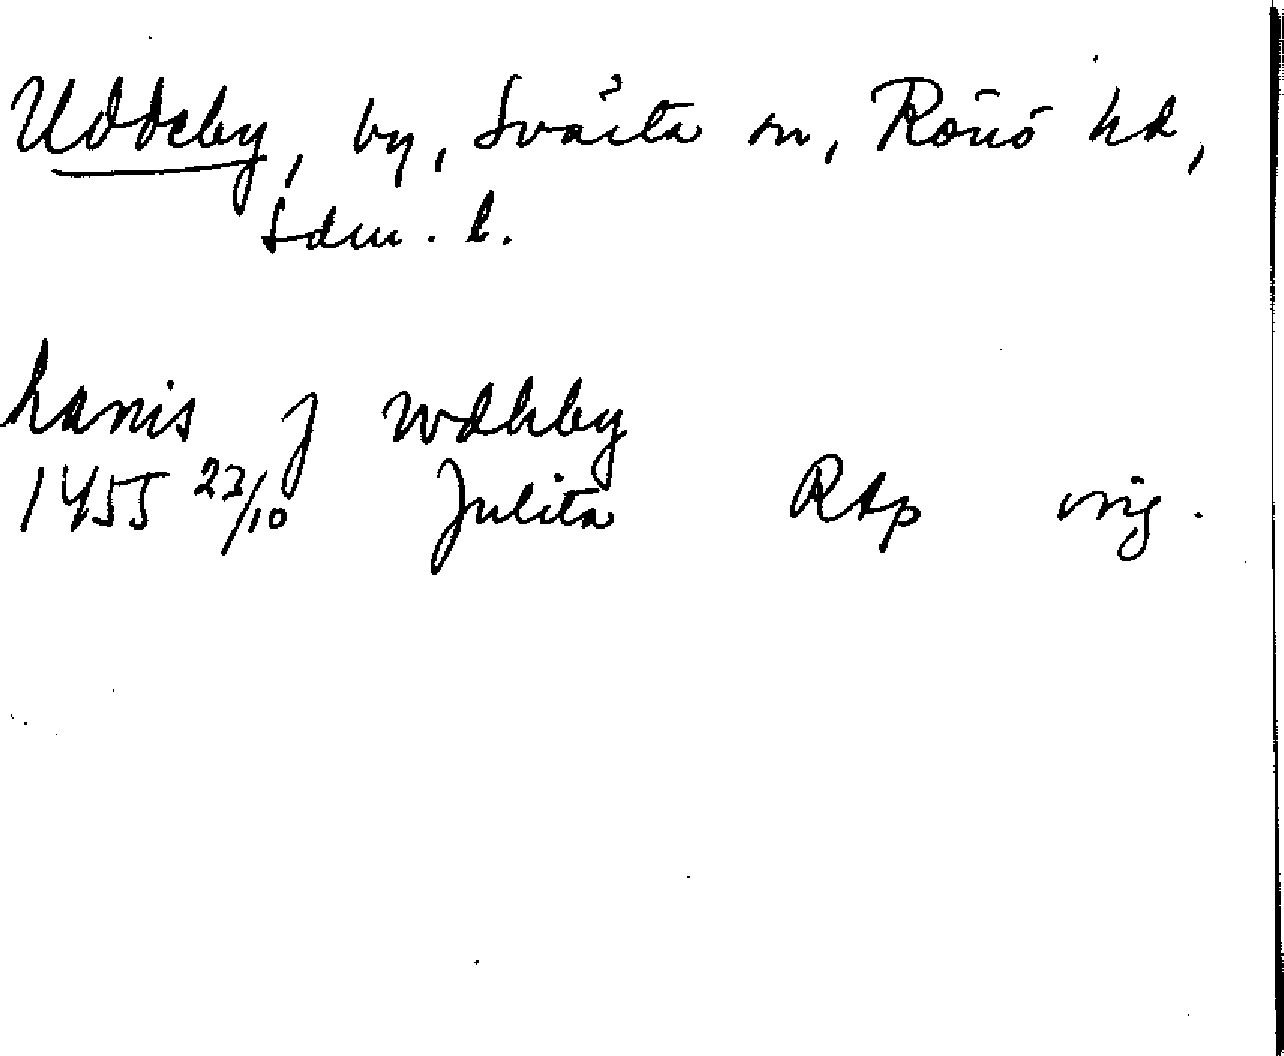 Uddeby, by, Svärta sn, Rönö hd,
Sdm. l.
Lanis j Wdhby
1455 23/10 Julita RAp orig.